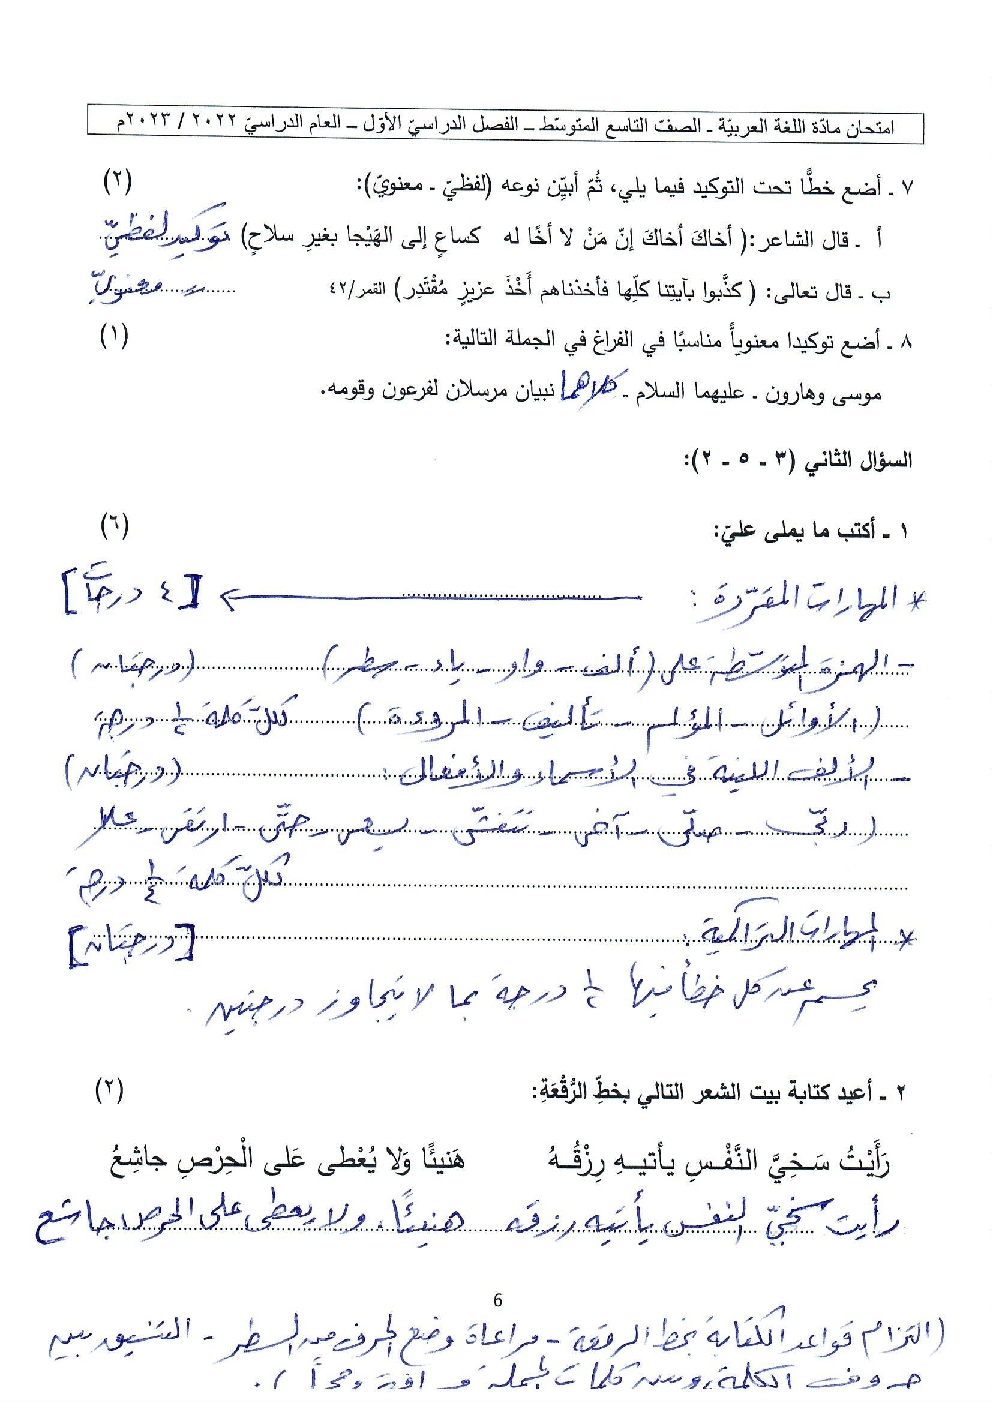 امتحان مادّة اللغة العربيّة ـ الصفّ التاسع المتوسّط ــ الفصل الدراسيّ الأوّل ــ العام الدراسيّ ٢٠٢٢ / ٢٠٢٣م
٧ ـ أضع خطًّا تحت التوكيد فيما يلي، ثُمّ أبيّن نوعه (لفظيّ ـ معنويّ): (٢)
أ ـ قال الشاعر: ( أخاكَ أخاكَ إنّ مَنْ لا أخَا له كساعٍ إلى الهَيْجا بغيرِ سلاحٍ) توكيد لفظيّ
ب ـ قال تعالى: ( كذَّبوا بآيتِنا كلِّها فأخذناهم أَخْذَ عزيزٍ مُقْتَدِر) القمر/٤٢ ........ 〃 معنويّ
٨ ـ أضع توكيدا معنوياً مناسبًا في الفراغ في الجملة التالية: (١)
موسى وهارون ـ عليهما السلام ـ كلاهما نبيان مرسلان لفرعون وقومه.
السؤال الثاني (٣ ـ ٥ ـ ٢):
١ ـ أكتب ما يملى عليّ: (٦)
* المهارات المقرّرة : [٤ درجات]
- الهمزة المتوسّطة على (ألف - واو - ياء - سطر) (درجتان)
(الأوائل - المؤلم - تأليف - المروءة) لكلّ كلمة ½ درجة
- الألف اللينة في الأسماء والأفعال : (درجتان)
( - صلّى - - - - حتّى - - علا
لكلّ كلمة ¼ درجة
* المهارات التراكمية : [درجتان]
يحسم عن كل خطأ فيها ½ درجة بما لا يتجاوز درجتين .
٢ ـ أعيد كتابة بيت الشعر التالي بخطّ الرُّقْعَةِ: (٢)
رَأَيْتُ سَخِيَّ النَّفْسِ يأتيهِ رِزْقُهُ هَنيئًا وَلا يُعْطى عَلى الْحِرْصِ جاشِعُ
رأيت سخيّ النفس يأتيه رزقه هنيئًا. ولا يعطى على الحرص جاشع
6
(التزام قواعد الكتابة بخط الرقعة - مراعاة وضع الحرف من السطر - التنسيق بين
حروف الكلمة، وبين كلمات الجملة